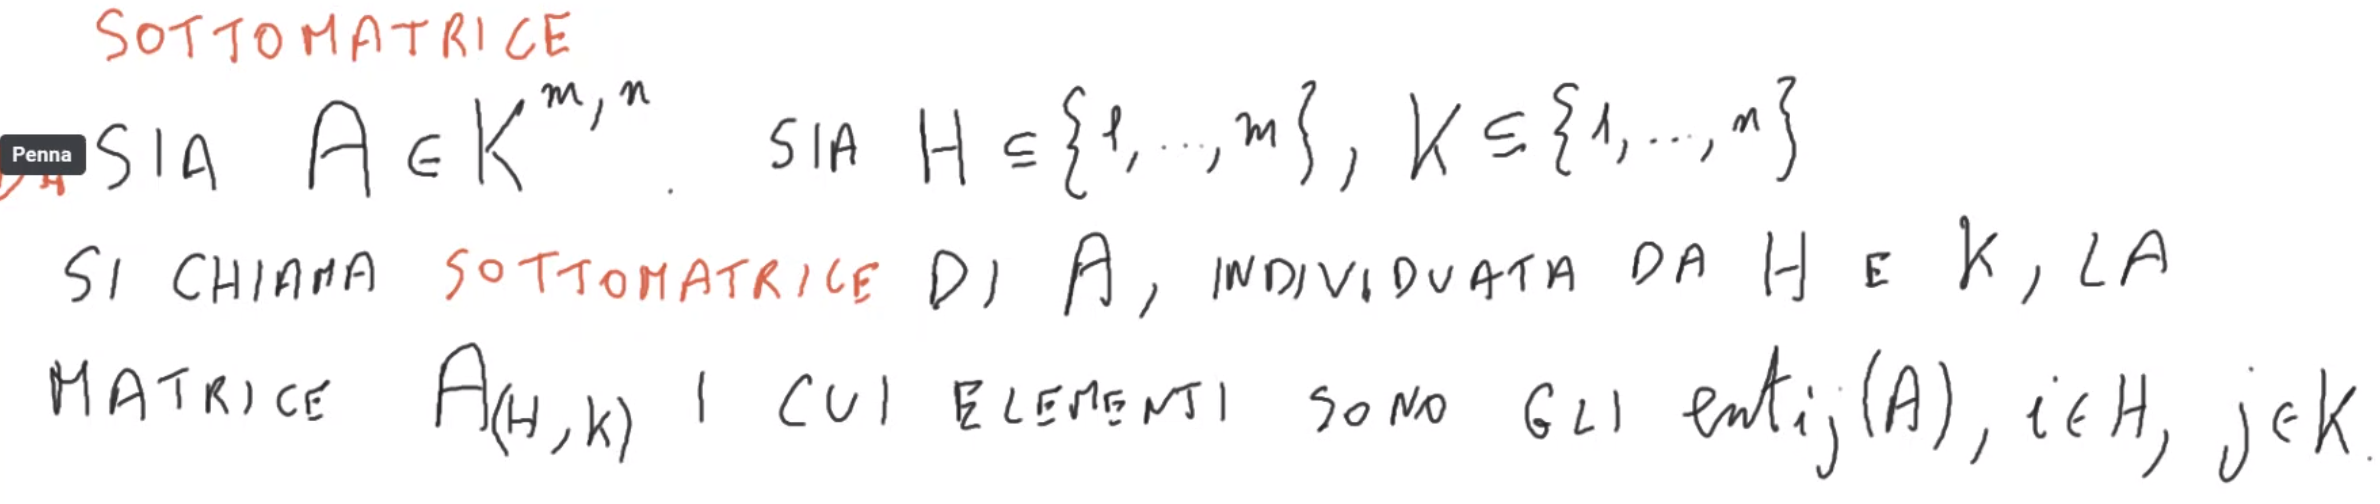 SOTTOMATRICE
SIA A ∈ K^{m,n}. SIA H ⊆ {1,...,m}, K ⊆ {1,...,n}
Penna
SI CHIAMA SOTTOMATRICE DI A, INDIVIDUATA DA H E K, LA
MATRICE A_{(H,K)} I CUI ELEMENTI SONO GLI ent_{ij}(A), i∈H, j∈K.